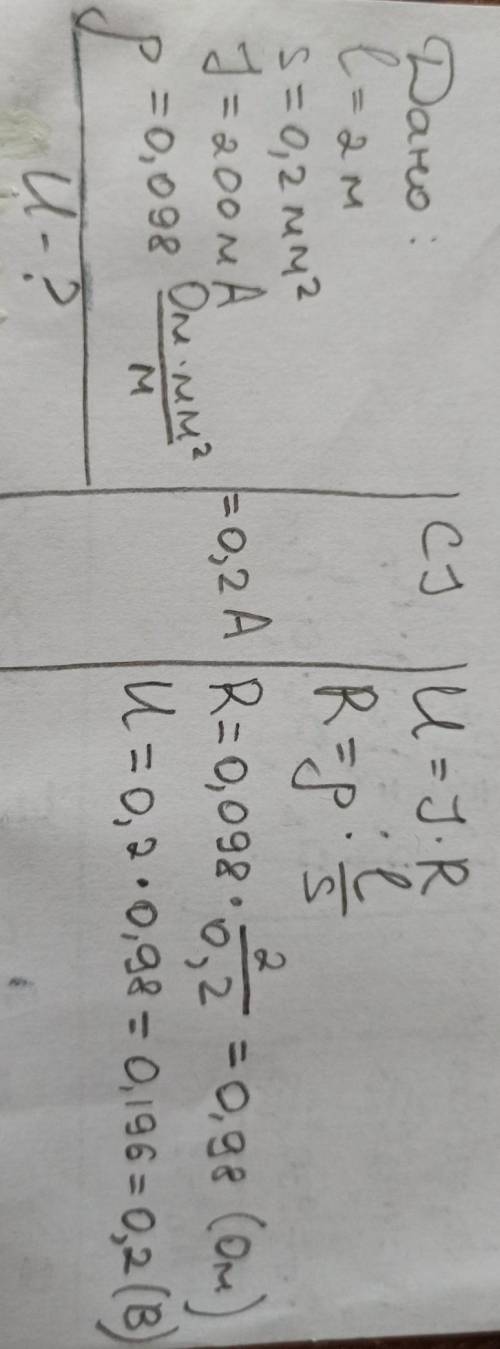 Дано:
l = 2 м
s = 0,2 мм²
J = 200 мА
ρ = 0,098 Ом·мм²/м
U - ?
СJ
= 0,2 А
U = J·R
R = ρ · l/s
R = 0,098 · 2/0,2 = 0,98 (Ом)
U = 0,2 · 0,98 = 0,196 = 0,2 (В)